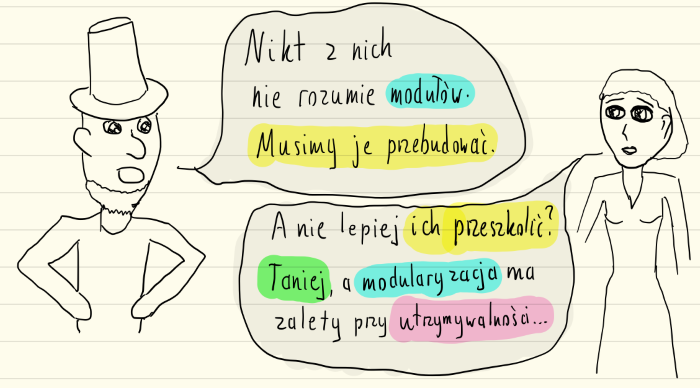 Nikt z nich
nie rozumie modułów.
Musimy je przebudować.
A nie lepiej ich przeszkolić?
Taniej, a modularyzacja ma
zalety przy utrzymywalności...